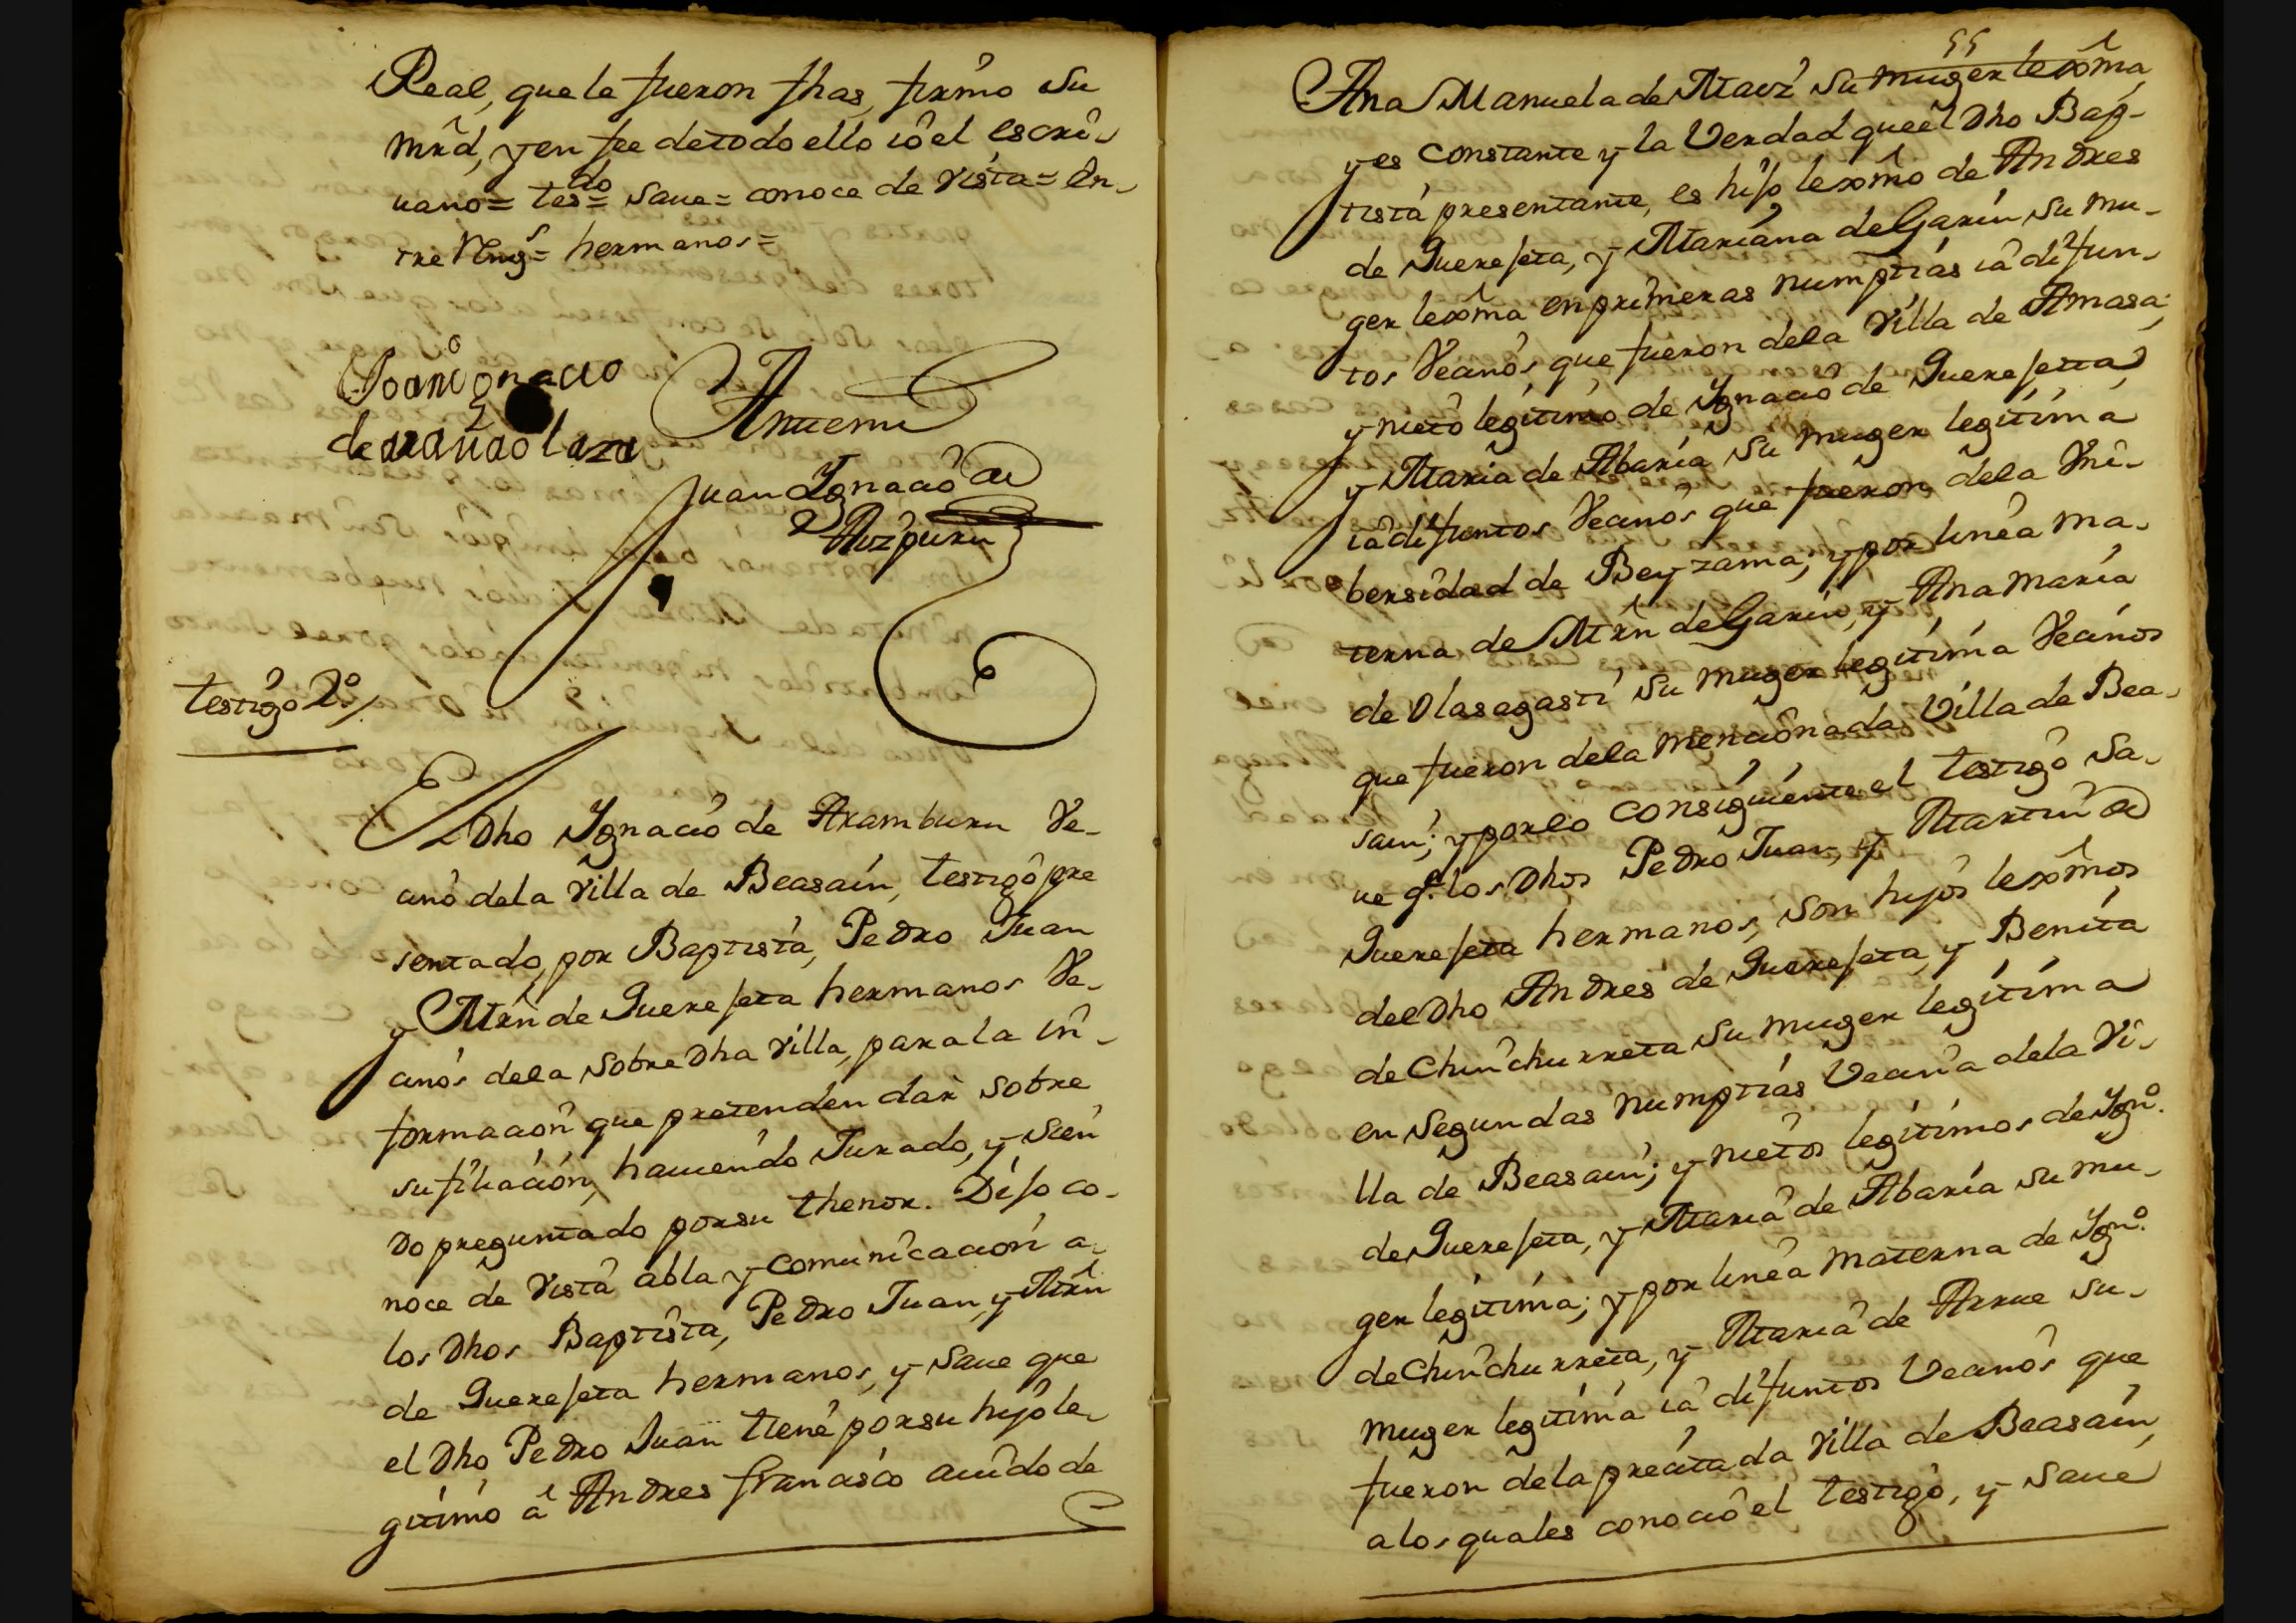 Real, que le fueron fhas, firmo su
mrd, y en fee de todo ello io el escri-
uano= tes=do= Saue= conoce de Vista= En-
tre Rengs= hermanos=
Joan Ignacio
de
Antemi
Juan Ygnacio de
Aizpuru
testigo 2º/
El Dho Ygnacio de Aramburu Ve-
cino de la Villa de Beasain, testigo pre
sentado, por Baptista, Pedro Juan
y Mrn de Guerejeta hermanos Ve-
cinos de la sobre Dha Villa, para la in-
formacion que pretenden dar sobre
su filiacion, hauiendo Jurado, y Sien
do preguntado por su thenor. Dijo co-
noce de Vista abla y comunicacion a
los Dhos Baptista, Pedro Juan, y Mrn
de Guerejeta hermanos, y Saue que
el Dho Pedro Juan tiene por su hijo le-
gitimo â Andres francisco auido de
55
Ana Manuela de Maiz su muger lexma,
y es constante y la Verdad que el Dho Bap-
tista presentante, es hijo lexmo de Andres
de Guerejeta, y Mariana de Garin su mu-
ger lexma en primeras numptias ia difun-
tos Vecinos que fueron de la Villa de Amasa;
y nieto legitimo de Ygnacio de Guerejetta
y Maria de Abaria su muger legitima
ia difuntos Vecinos que fueron de la Vni-
bersidad de Beyzama; y por linea ma-
terna de Mrn de Garin, y Ana Maria
de Olasagasti su muger legitima Vecinos
que fueron de la mencionada Villa de Bea-
sain; y por lo consiguiente el testigo sa-
ue q.e los Dhos Pedro Juan, y Martin de
Guerejeta hermanos, son hijos lexmos
del Dho Andres de Guerejeta, y Benita
de Chinchurreta su muger legitima
en segundas numptias Vecina de la Vi-
lla de Beasain; y nietos legitimos de Ygnº.
de Guerejeta, y Maria de Abaria su mu-
ger legitima; y por linea materna de Ygnº.
de Chinchurreta, y Maria de Arrue su-
muger legitima ia difuntos Vecinos que
fueron de la precitada Villa de Beasain,
a los quales conocio el testigo, y saue